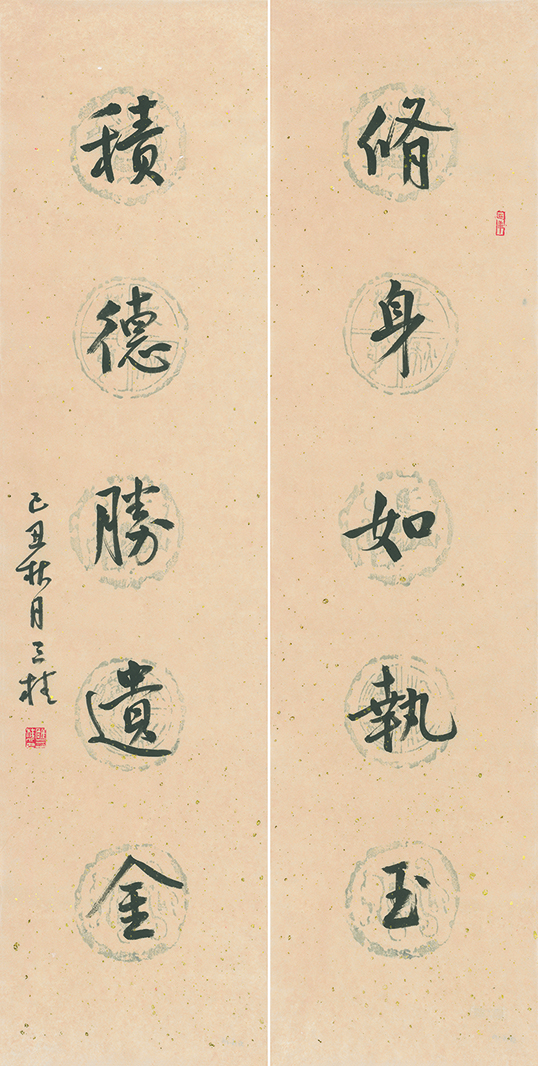 脩身如執玉
積德勝遺金
己丑秋月三桂